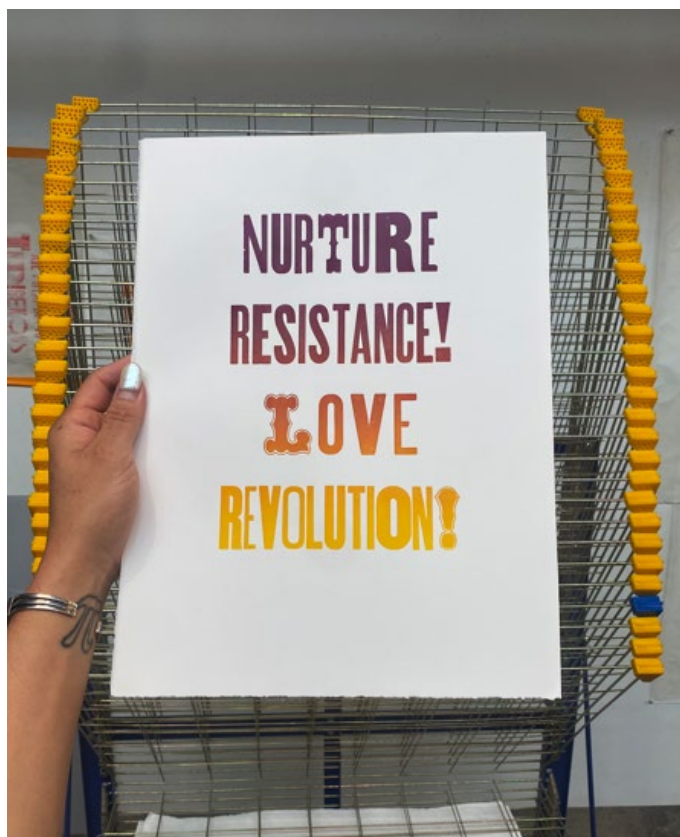 NURTURE
RESISTANCE!
LOVE
REVOLUTION!